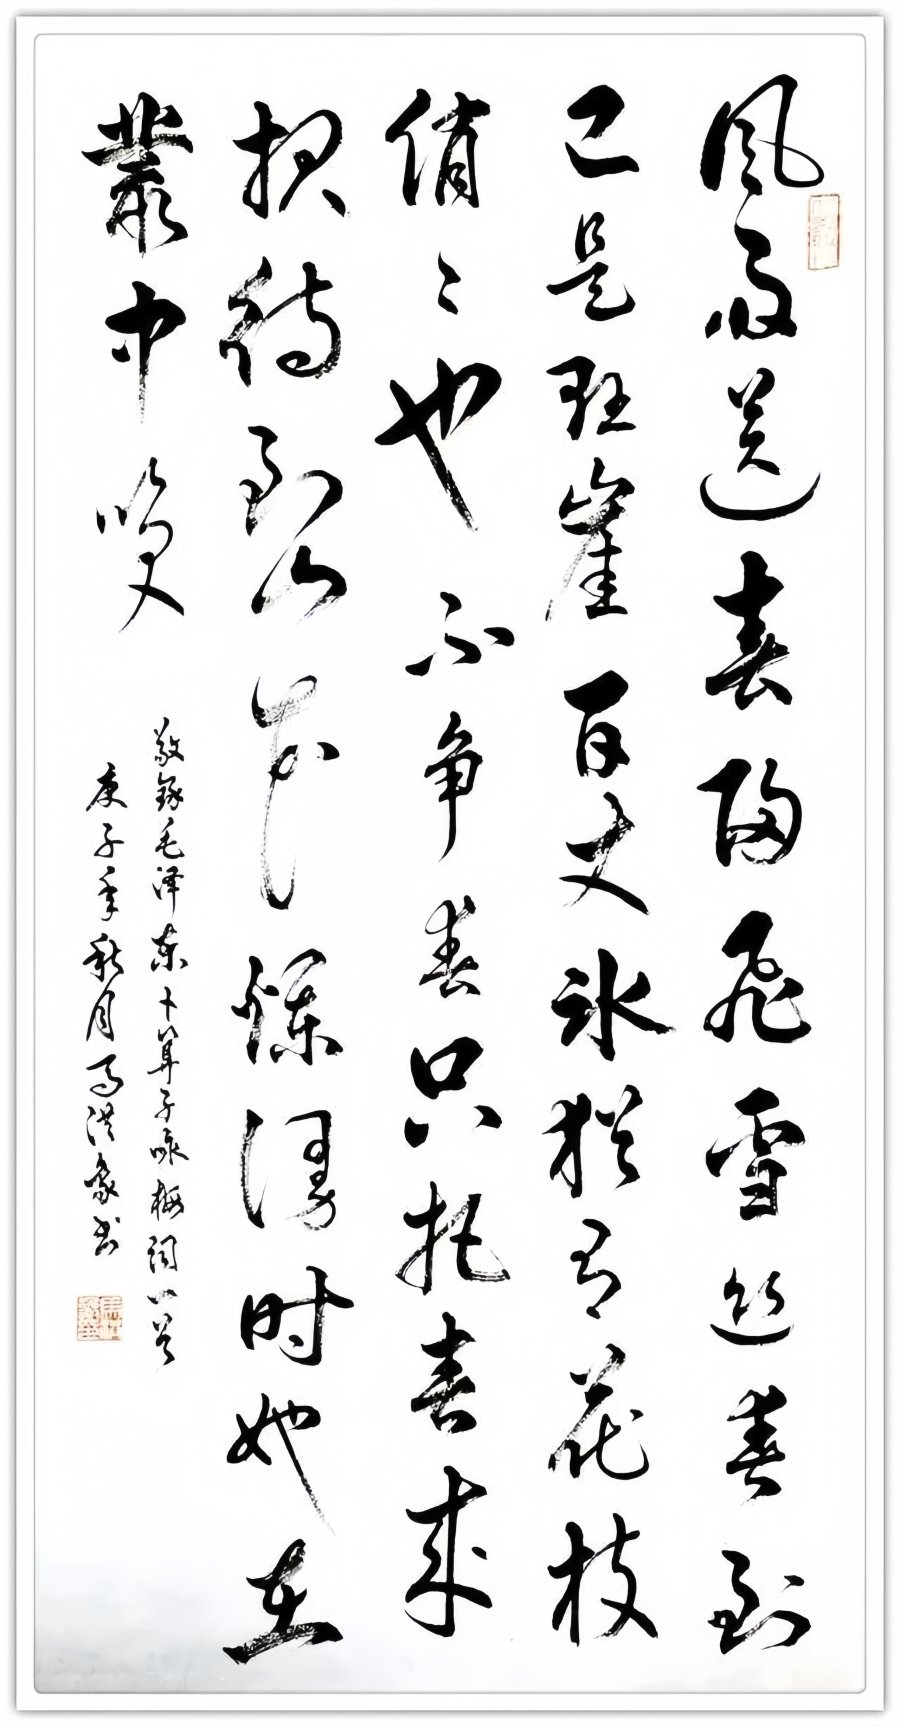 风雨送春归飞雪迎春到
已是悬崖百丈冰犹有花枝
俏々也不争春只把春来
报待到山花烂漫时她在
叢中咲
敬録毛泽东卜算子咏梅词一首
庚子年秋月马洪象书